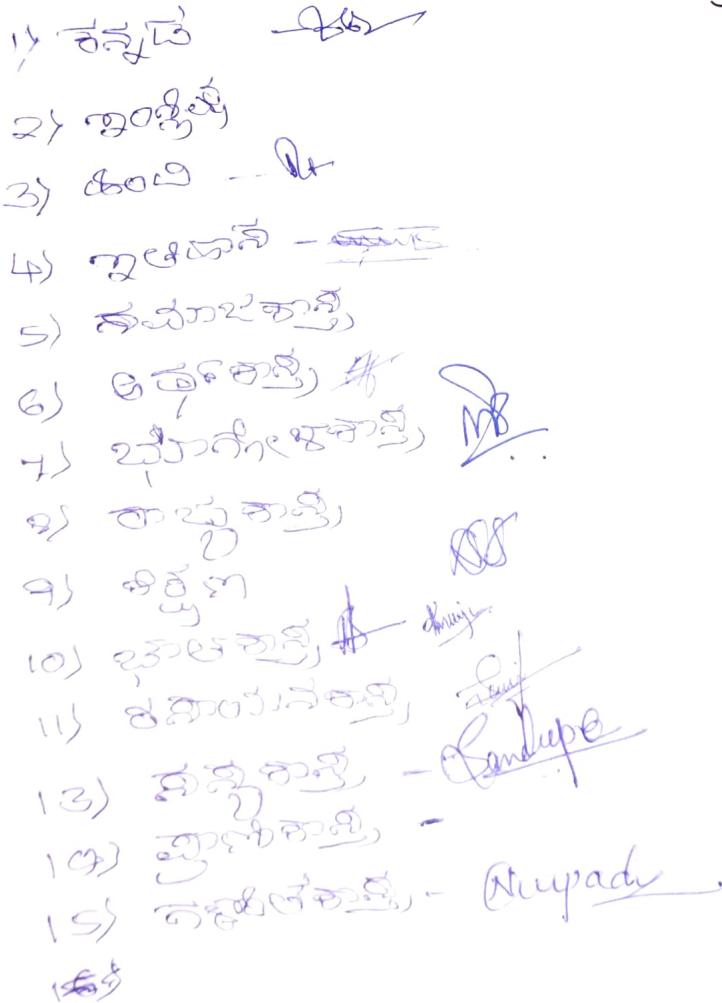 1) ಕನ್ನಡ
2) ಇಂಗ್ಲಿಷ್
3) ಹಿಂದಿ
4) ಇತಿಹಾಸ
5) ಸಮಾಜಶಾಸ್ತ್ರ
6) ಅರ್ಥಶಾಸ್ತ್ರ
7) ಭೂಗೋಳಶಾಸ್ತ್ರ
8) ರಾಜ್ಯಶಾಸ್ತ್ರ
9) ಶಿಕ್ಷಣ
10) ಭೌತಶಾಸ್ತ್ರ
11) ರಸಾಯನಶಾಸ್ತ್ರ
13) ಸಸ್ಯಶಾಸ್ತ್ರ -
14) ಪ್ರಾಣಿಶಾಸ್ತ್ರ -
15) ಗಣಿತಶಾಸ್ತ್ರ -